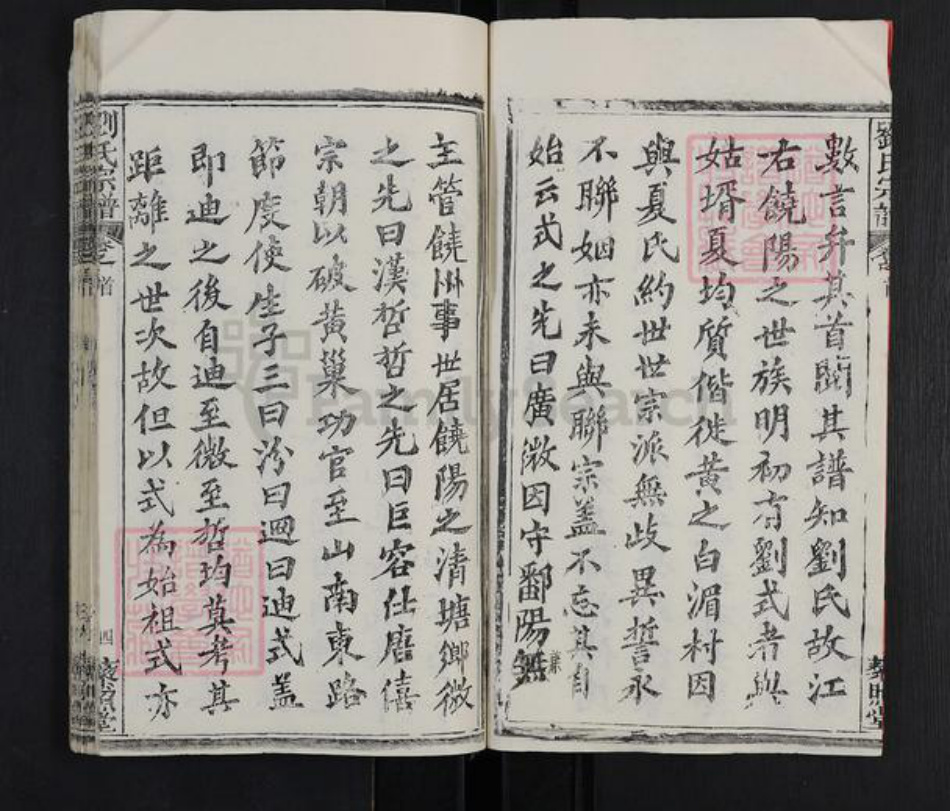 數言弁其首閱其譜知劉氏故江
右饒陽之世族明初有劉式者與
姑壻夏均質偕徙黃之白湄村因
與夏氏約世世宗派無歧異誓永
不聯姻亦未與聯宗蓋不忘其自
始云式之先曰廣微因守鄱陽兼
主管饒州事世居饒陽之清塘鄉微
之先曰漢哲哲之先曰巨容仕唐僖
宗朝以破黃巢功官至山南東路
節度使生子三曰汾曰迥曰迪式蓋
即迪之後自迪至微至哲均莫考其
距離之世次故但以式為始祖式亦
劉氏宗譜
卷之
首
四
FamilySearch